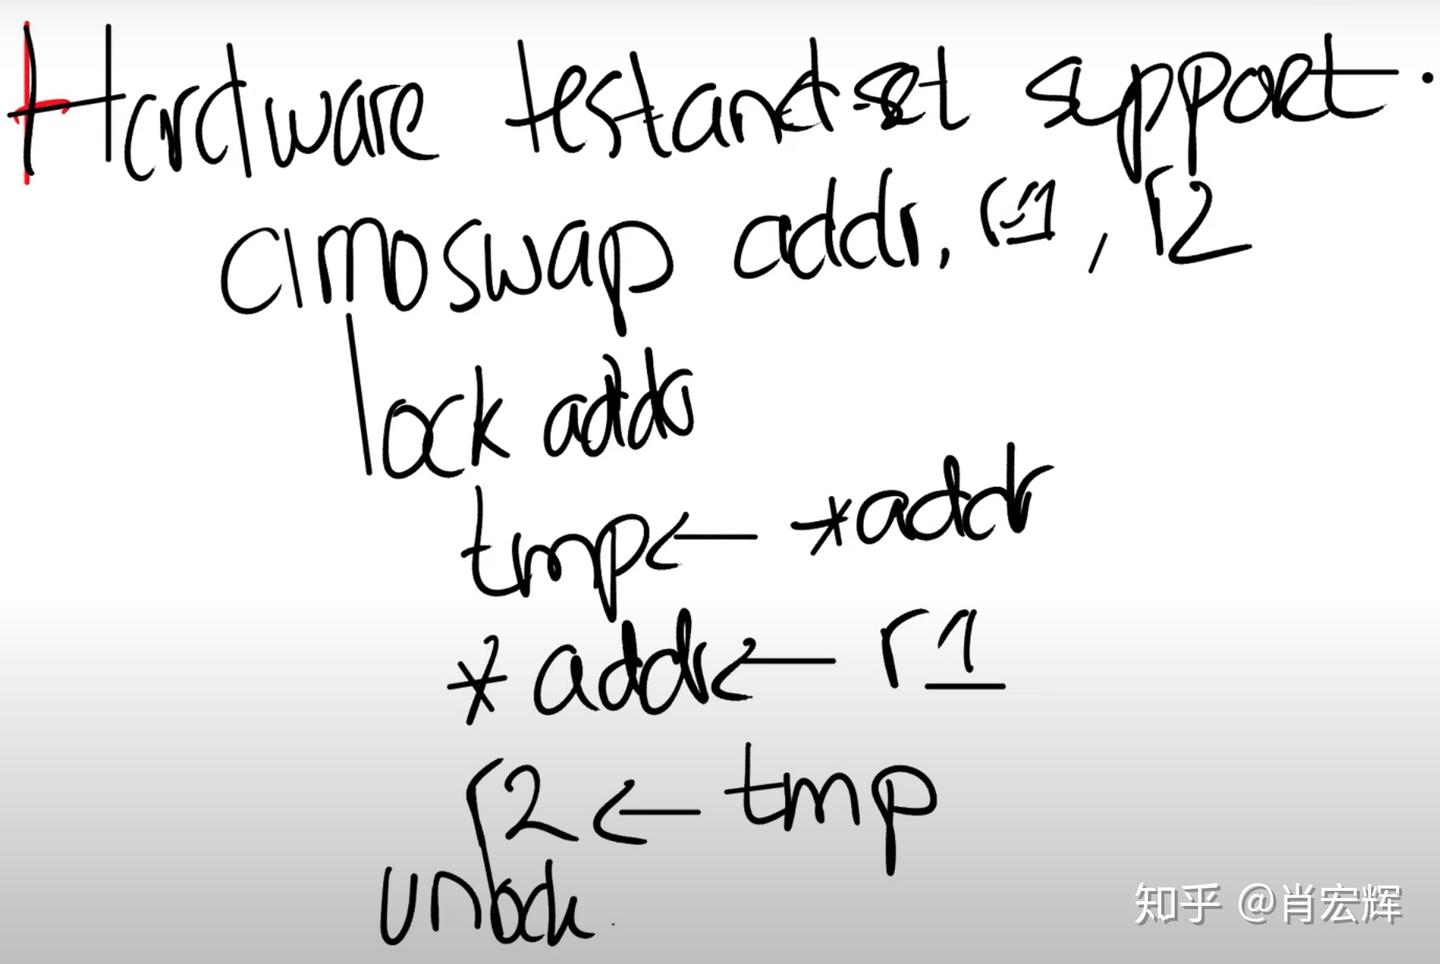 Hardware test and set support.
amoswap addr, r1, r2
lock addr
tmp ← *addr
*addr ← r1
r2 ← tmp
unlock.
知乎 @肖宏辉